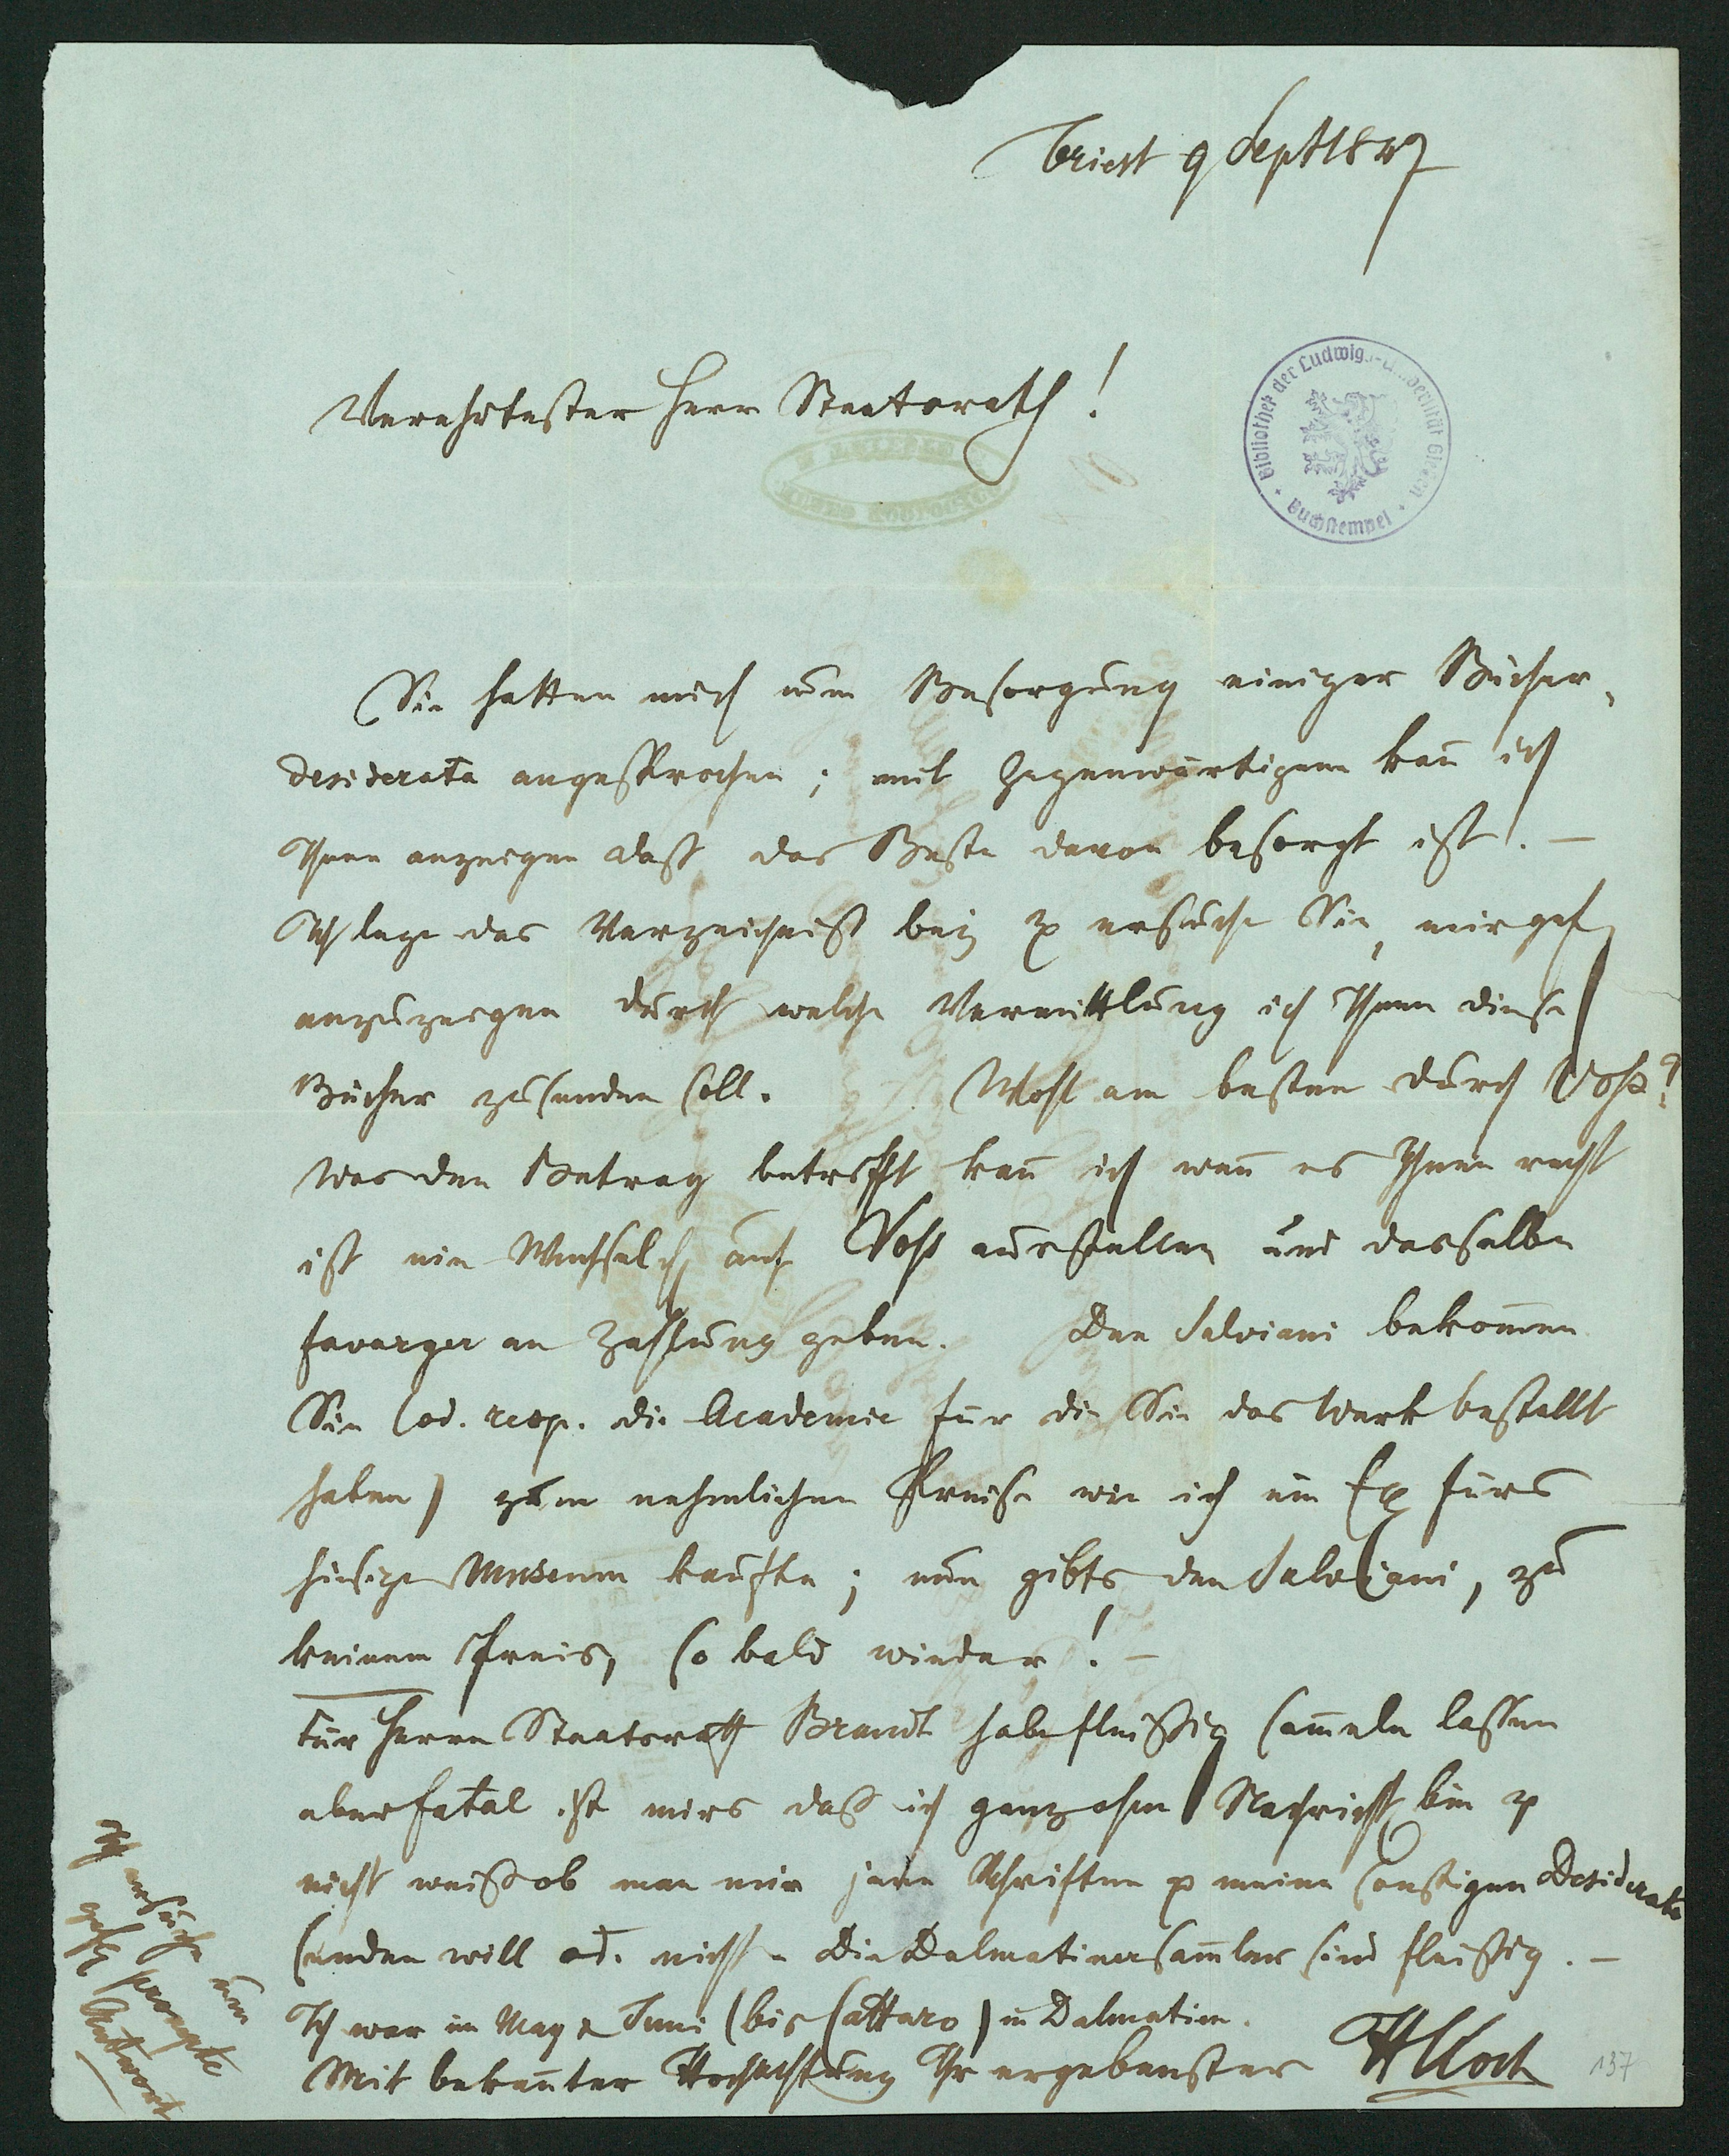 Triest 9 Sept 1847
Verehrtester Herr Staatsrath!
Bibliothek der Ludwigs-Universität Giessen
Buchstempel
Sie hatten mich um Besorgung einiger Bücher-
desiderata angesprochen; mit Gegenwärtigem kan̄ ich
Ihnen anzeigen daß das Beste davon besorgt ist. —
Ich lege das Verzeichniß bey & ersuche Sie, mir gef.
anzuzeigen durch welche Vermittlung ich Ihnen diese
Bücher zusenden soll. Wohl am besten durch Voss?
Was den Betrag betrifft kan̄ ich wen̄ es Ihnen recht
ist ein Wechselch auf Voss ausstellen und dasselbe
Favarger an Zahlung geben. Den Salviani bekom̄en
Sie (od. resp. die Academie für die Sie das Werk bestellt
haben) zum nehmlichen Preise wie ich ein Ex fürs
hiesige Museum kaufte; nun gibts den Salviani, zu
keinem Preis, so bald wieder! —
Für Herrn Staatsrath Brandt habe fleißig sam̄eln lassen
aber fatal ist mirs daß ich ganz ohne Nachricht bin &
nicht weiß ob man mir jene Schriften & meine sonstigen Desiderata
senden will od. nicht – Die Dalmatinersam̄ler sind fleißig. —
Ich war im May & Juni (bis Cattaro) in Dalmatien.
Mit bekan̄ter Hochachtung Ihr ergebenster HKoch
137
Ich ersuche um
gef. prompte
Antwort